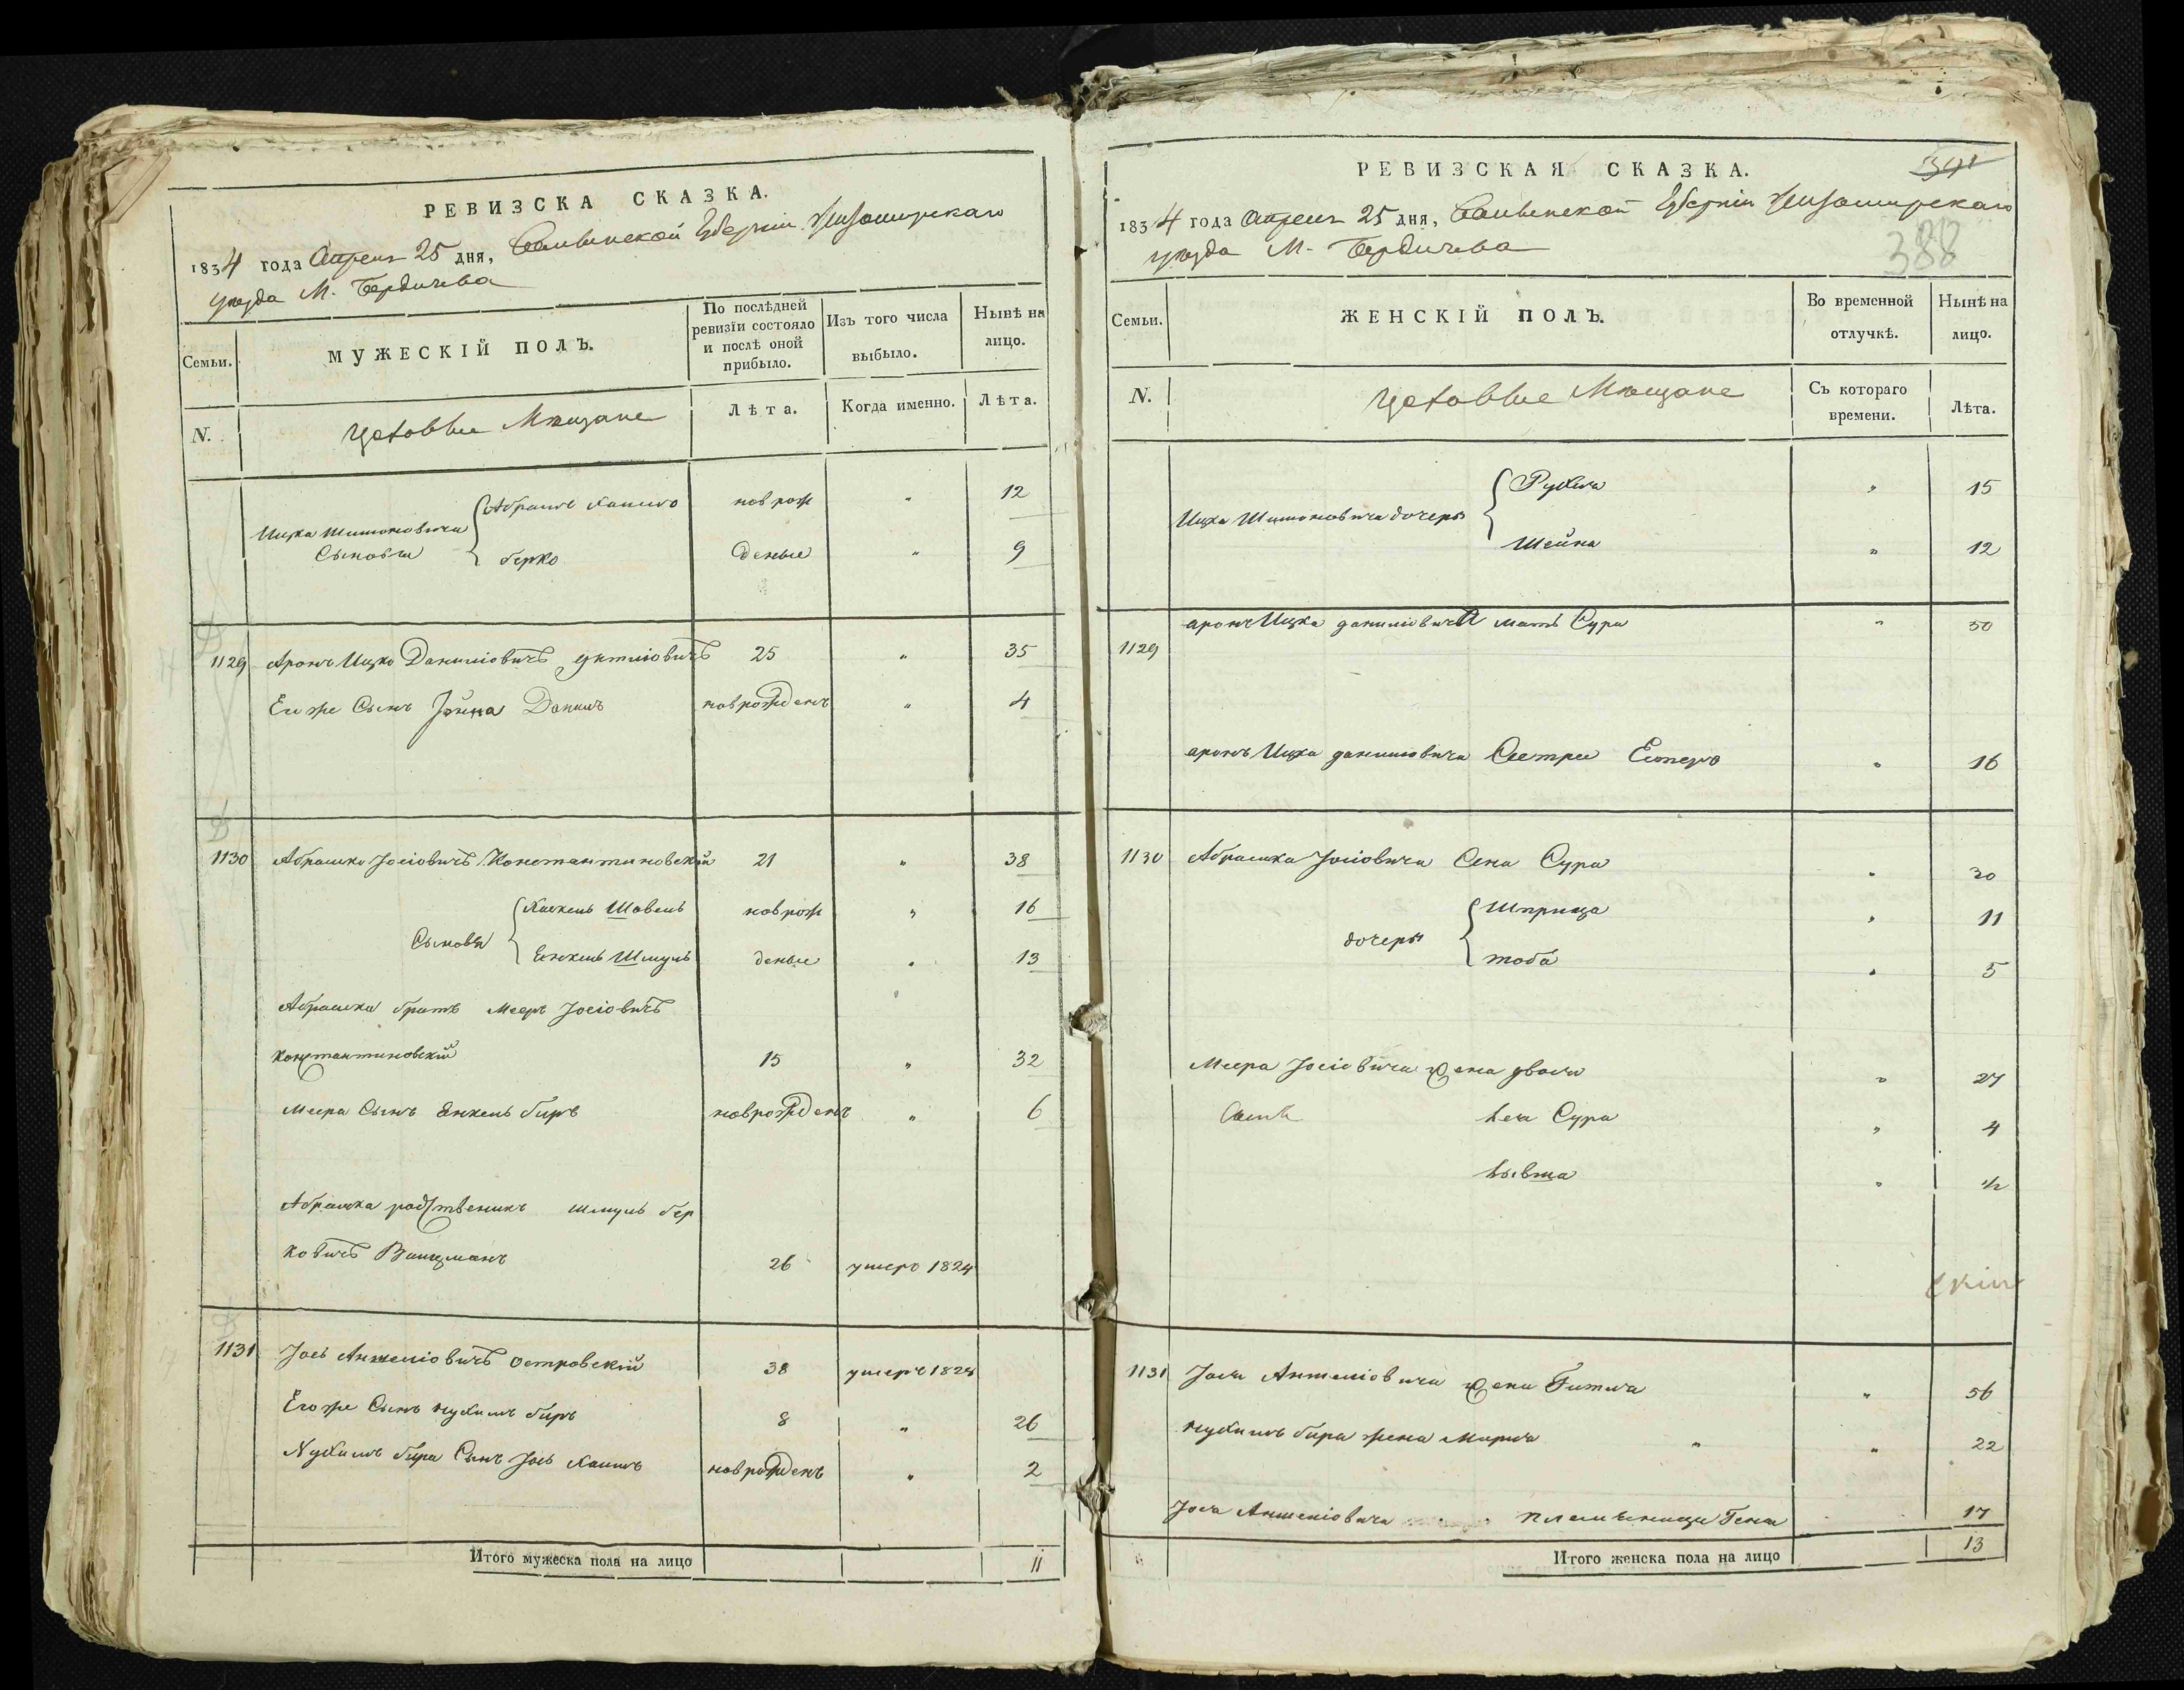 РЕВИЗСКА СКАЗКА.
1834 года Апреля 25 дня, Волынской Губернии Житомирскаго
уезда М. Бердичева
Семьи.
МУЖЕСКІЙ ПОЛЪ.
По послѣдней ревизіи состояло и послѣ оной прибыло.
Изъ того числа выбыло.
Нынѣ на лицо.
N.
Цеховые Мещане
Лѣта.
Когда именно.
Лѣта.
Ицка Шимоновича Сыновья
Абрамъ Хаимъ новрож „ 12
берко деные „ 9
1129 Аронъ Ицко Даниловичъ 25 „ 35
Его же Сынъ Данилъ новрожденъ „ 4
1130 Абрашко Іосіовичъ Константиновскій 21 „ 38
Сыновя
Шовель новрож „ 16
Енкель Шмуль деные „ 13
Абрашка братъ Мееръ Іосіовичъ
константиновскій 15 „ 32
Меера Сынъ Енкель беръ новрожденъ „ 6
Абрашка родственикъ шмуль бер
ковичъ Ваицманъ 26 умеръ 1824
1131 Іось Аншеліовичъ островскій 38 умеръ 1824
Его же Сынъ нухимъ беръ 8 „ 26
Нухимъ бера Сынъ Іось Хаимъ новрожденъ „ 2
Итого мужеска пола на лицо 11
РЕВИЗСКАЯ СКАЗКА.
391
1834 года Апреля 25 дня, Волынской Губерніи Житомирскаго
388
уезда М. Бердичева
Семьи.
ЖЕНСКІЙ ПОЛЪ.
Во временной отлучкѣ.
Нынѣ на лицо.
N.
Цеховые Мещане
Съ котораго времени.
Лѣта.
Ицка Шимоновича дочеры
Рухля „ 15
Шейна „ 12
1129 аронъ Ицка даниловича мать Сура „ 50
аронъ Ицка даниловича Сестра Естеръ „ 16
1130 Абрашка Іосіовича Сура „ 30
дочеры
Шприца „ 11
тоба „ 5
Меера Іосіовича жена двоси „ 27
Сура „ 4
„ 1/2
скій
1131 Іося Аншеліовича жена Гитля „ 56
нухимъ бера жена Мирля „ 22
Іося Аншеліовича племѣница Геня 17
Итого женска пола на лицо 13